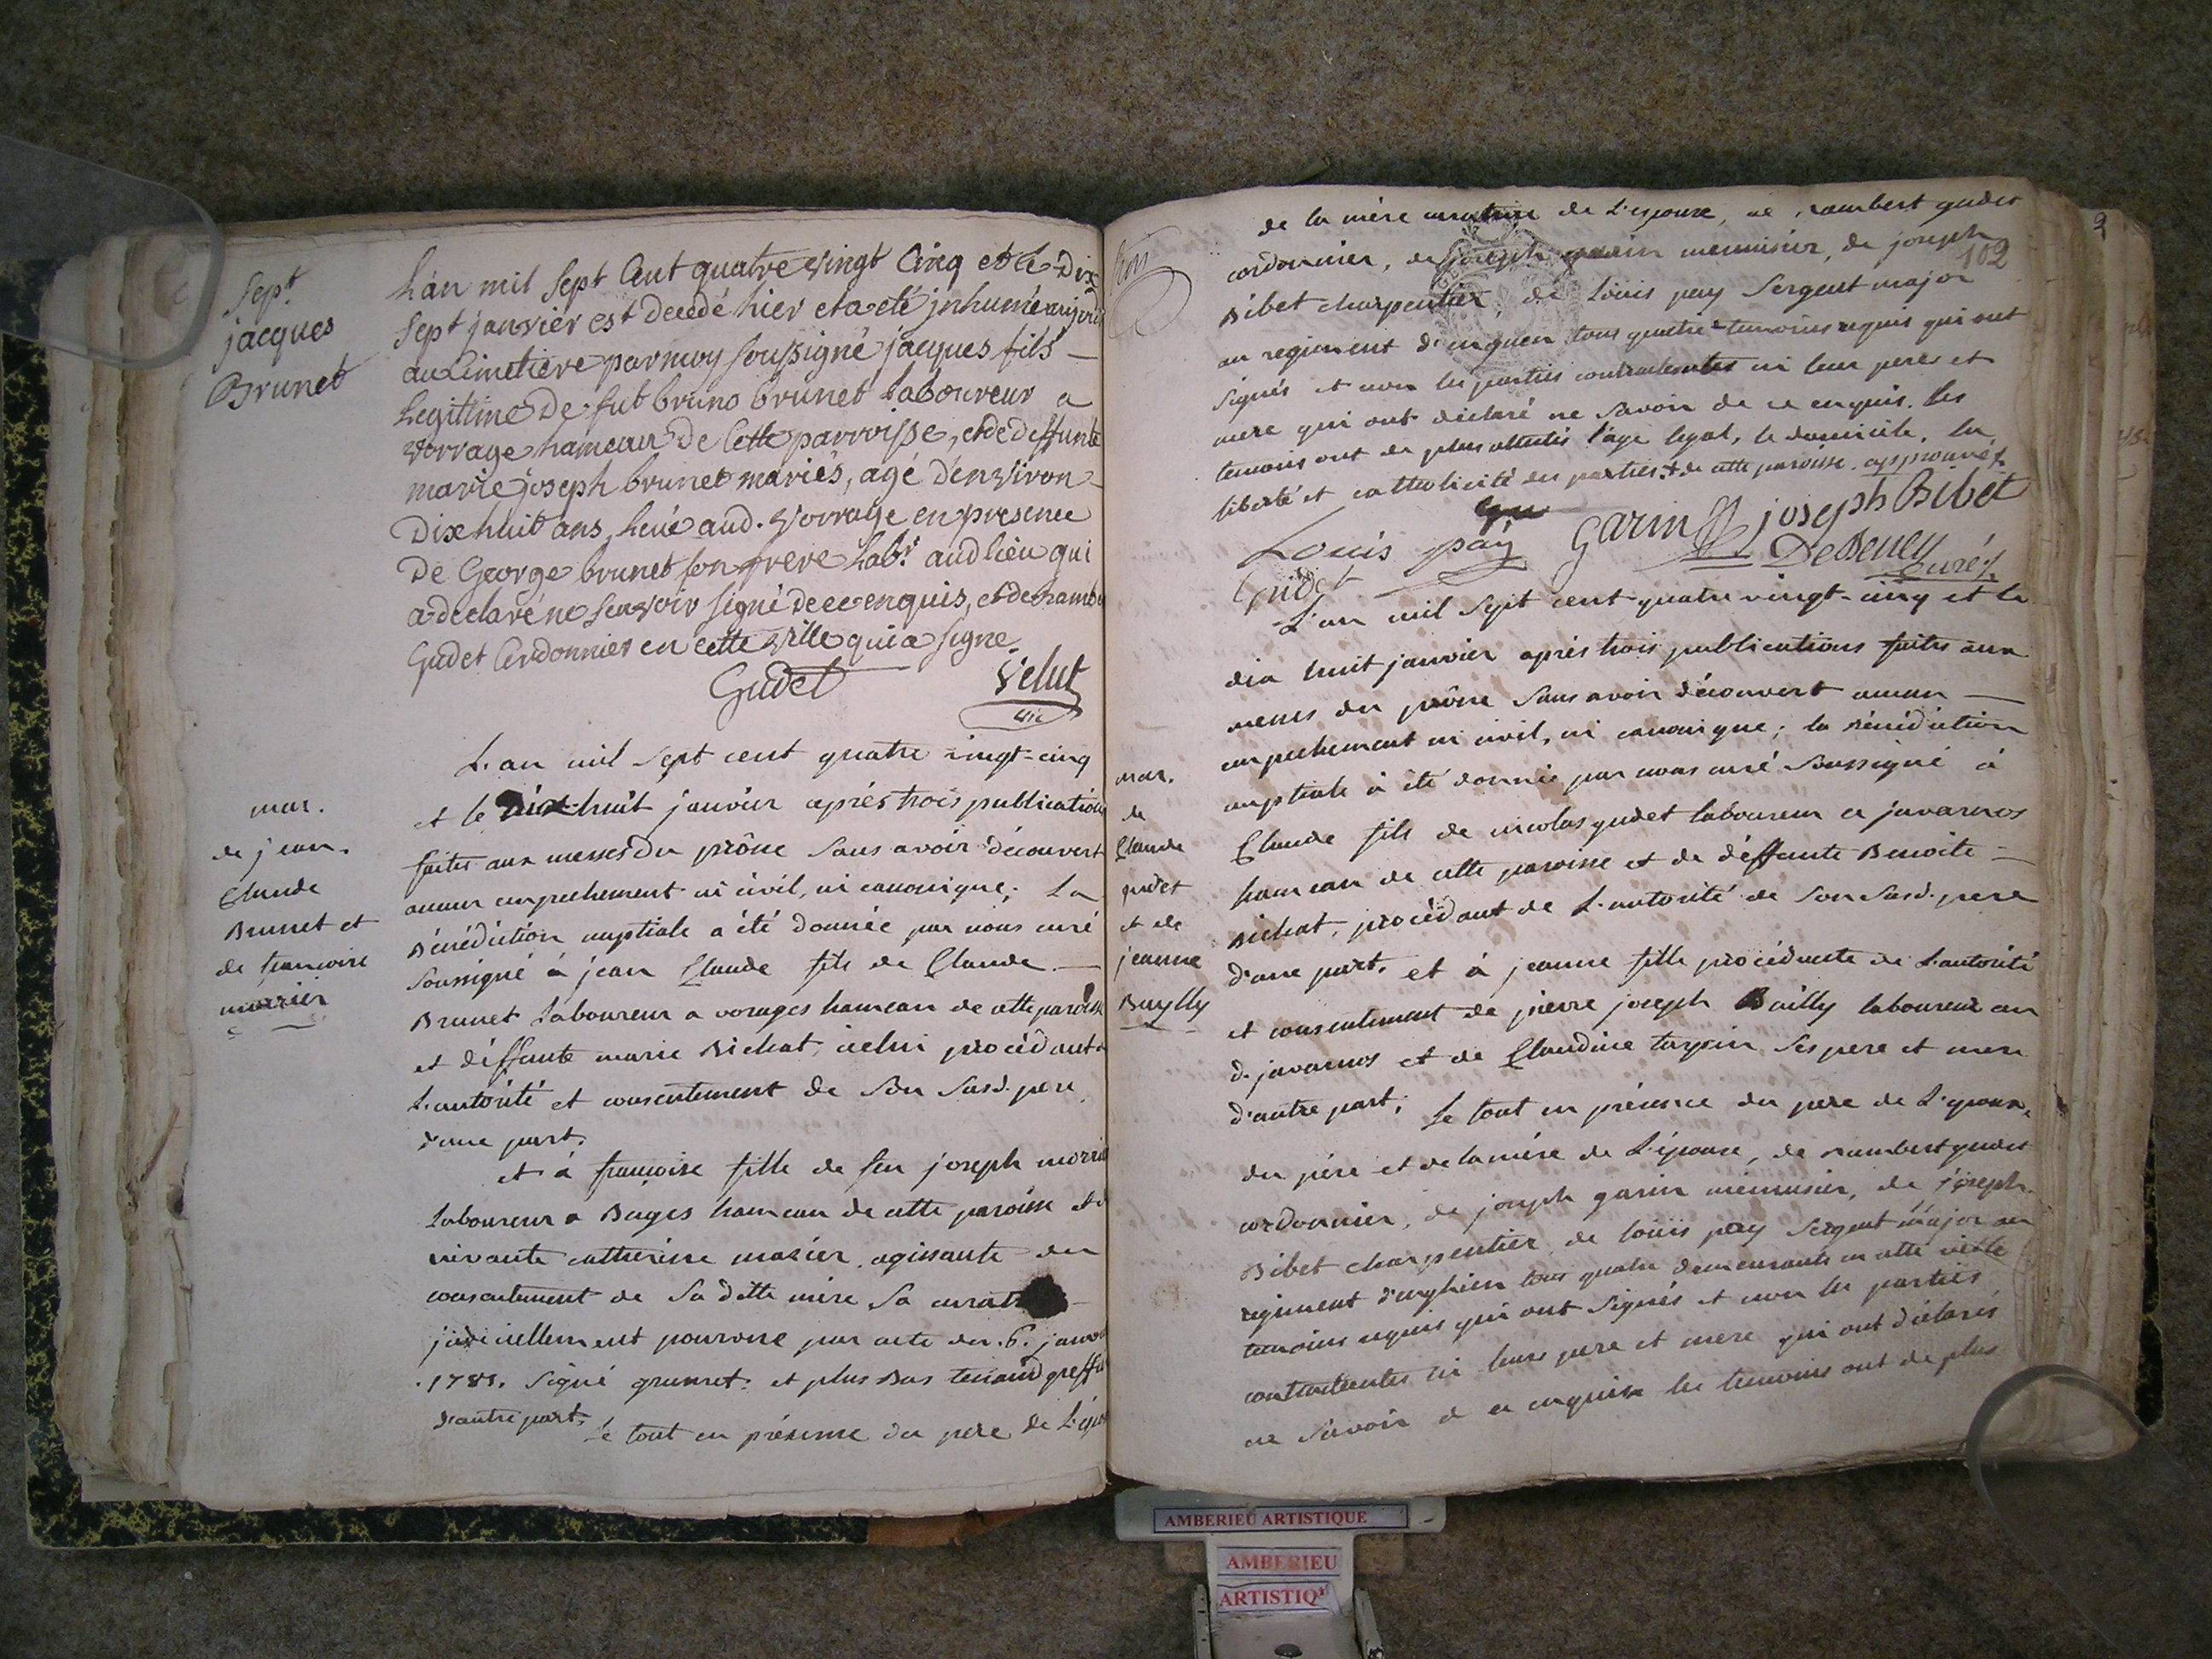 Sept.
jacques
Brunet
L'an mil Sept Cent quatre vingt Cinq et le Dix
Sept janvier est decedé hier et a eté jnhumé aujourd
au Cimetiere par moy soussigné jacques fils
Legitime De fut bruno brunet Laboureur a
vorrage hameau de Cette parroisse, et de deffunte
marie joseph brunet mariés, agé d'environ
Dix huit ans, aud. vorrage en presence
De George brunet son frere Labr. aud lieu qui
a declaré ne Scavoir signé de ce enquis, et de rambe
Gudet Cordonnier en cette ville qui a signé.
Gudet Velut
vic
mar.
de jean.
Claude
Brunet et
de francoise
morrier
L'an mil Sept cent quatre vingt-cinq
et le dix-huit janvier après trois publications
faites aux messes du prône Sans avoir découvert
aucun empechement ni civil, ni canonique; La
Bénédiction nuptiale a été donnée par nous curé
Soussigné à jean Claude fils de Claude
Brunet Laboureur a vorages hameau de cette paroisse
et déffunte marie Bichat, icelui procédant de
L'autorité et consentement de Son Susd. pere,
d'une part.
et à francoise fille de feu joseph morrier
Laboureur a Buges hameau de cette paroisse et de
vivante catherine mazier, agissante du
consentement de Sa ditte mère Sa curat
judiciellement pourvue par acte du .6. janv
.1785. Signé grumet. et plus Bas tenand greff
d'autre part. Le tout en présence du pere de L'épo
de la mère curatrice de L'epouse, de rambert gudet
cordonnier, de joseph garin menuisier, de joseph
102
Bibet charpentier, de Louis pay Sergent major
au regiment d'enguen tous quatre temoins requis qui ont
Signés et non les parties contractantes ni leur pere et
mere qui ont déclaré ne Savoir de ce enquis. les
temoins ont de plus attestés l'age legal, le domicile, la
liberté et catholicité des parties + de cette paroisse. approuvé +
Louis pay Garin joseph Bibet
Gudet DeSeney Curé
mar.
de
Claude
gudet
et de
jeanne
Buylly
L'an mil Sept cent quatre vingt-cinq et le
dix huit janvier après trois publications faites aux
messes du prône Sans avoir découvert aucun
empechement ni civil, ni canonique; la Bénédiction
nuptiale à été donnée par nous curé Soussigné à
Claude fils de nicolas gudet laboureur a javarnos
hameau de cette paroisse et de déffunte Benoite
Bichat, procédant de L'autorité de Son Susd. pere
d'une part. et à jeanne fille procédante de L'autorité
et consentement de pierre joseph Builly laboureur au
d. javarnos et de Claudine tarpin Ses pere et mere
d'autre part. Le tout en présence du pere de L'epoux,
du père et de la mère de L'épouse, de rambert gudet
cordonnier, de joseph garin menuisier, de joseph
Bibet charpentier, de Louis pay Sergent major au
regiment d'enghien tous quatre demeurants en cette ville
temoins requis qui ont Signés et non les parties
contractantes ni leurs pere et mere qui ont déclarés
ne Savoir de ce enquis les temoins ont de plus
AMBERIEU ARTISTIQUE
AMBERIEU
ARTISTIQ